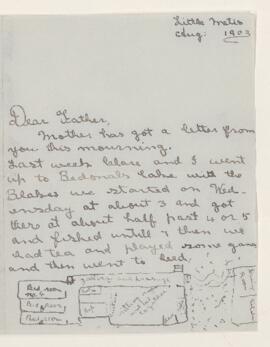 Little Metis
Aug: 1903
Dear Father,
Mother has got a letter from
you this mourning.
Last week Clare and I went
up to Bedonals lake with the
Blakes we started on Wed-
ensday at about 3 and got
there at about half past 4 or 5
and fished untill 7 then we
had tea and played some games
and then went to bed.
Bed room
no. 4
Bed room
Bed room